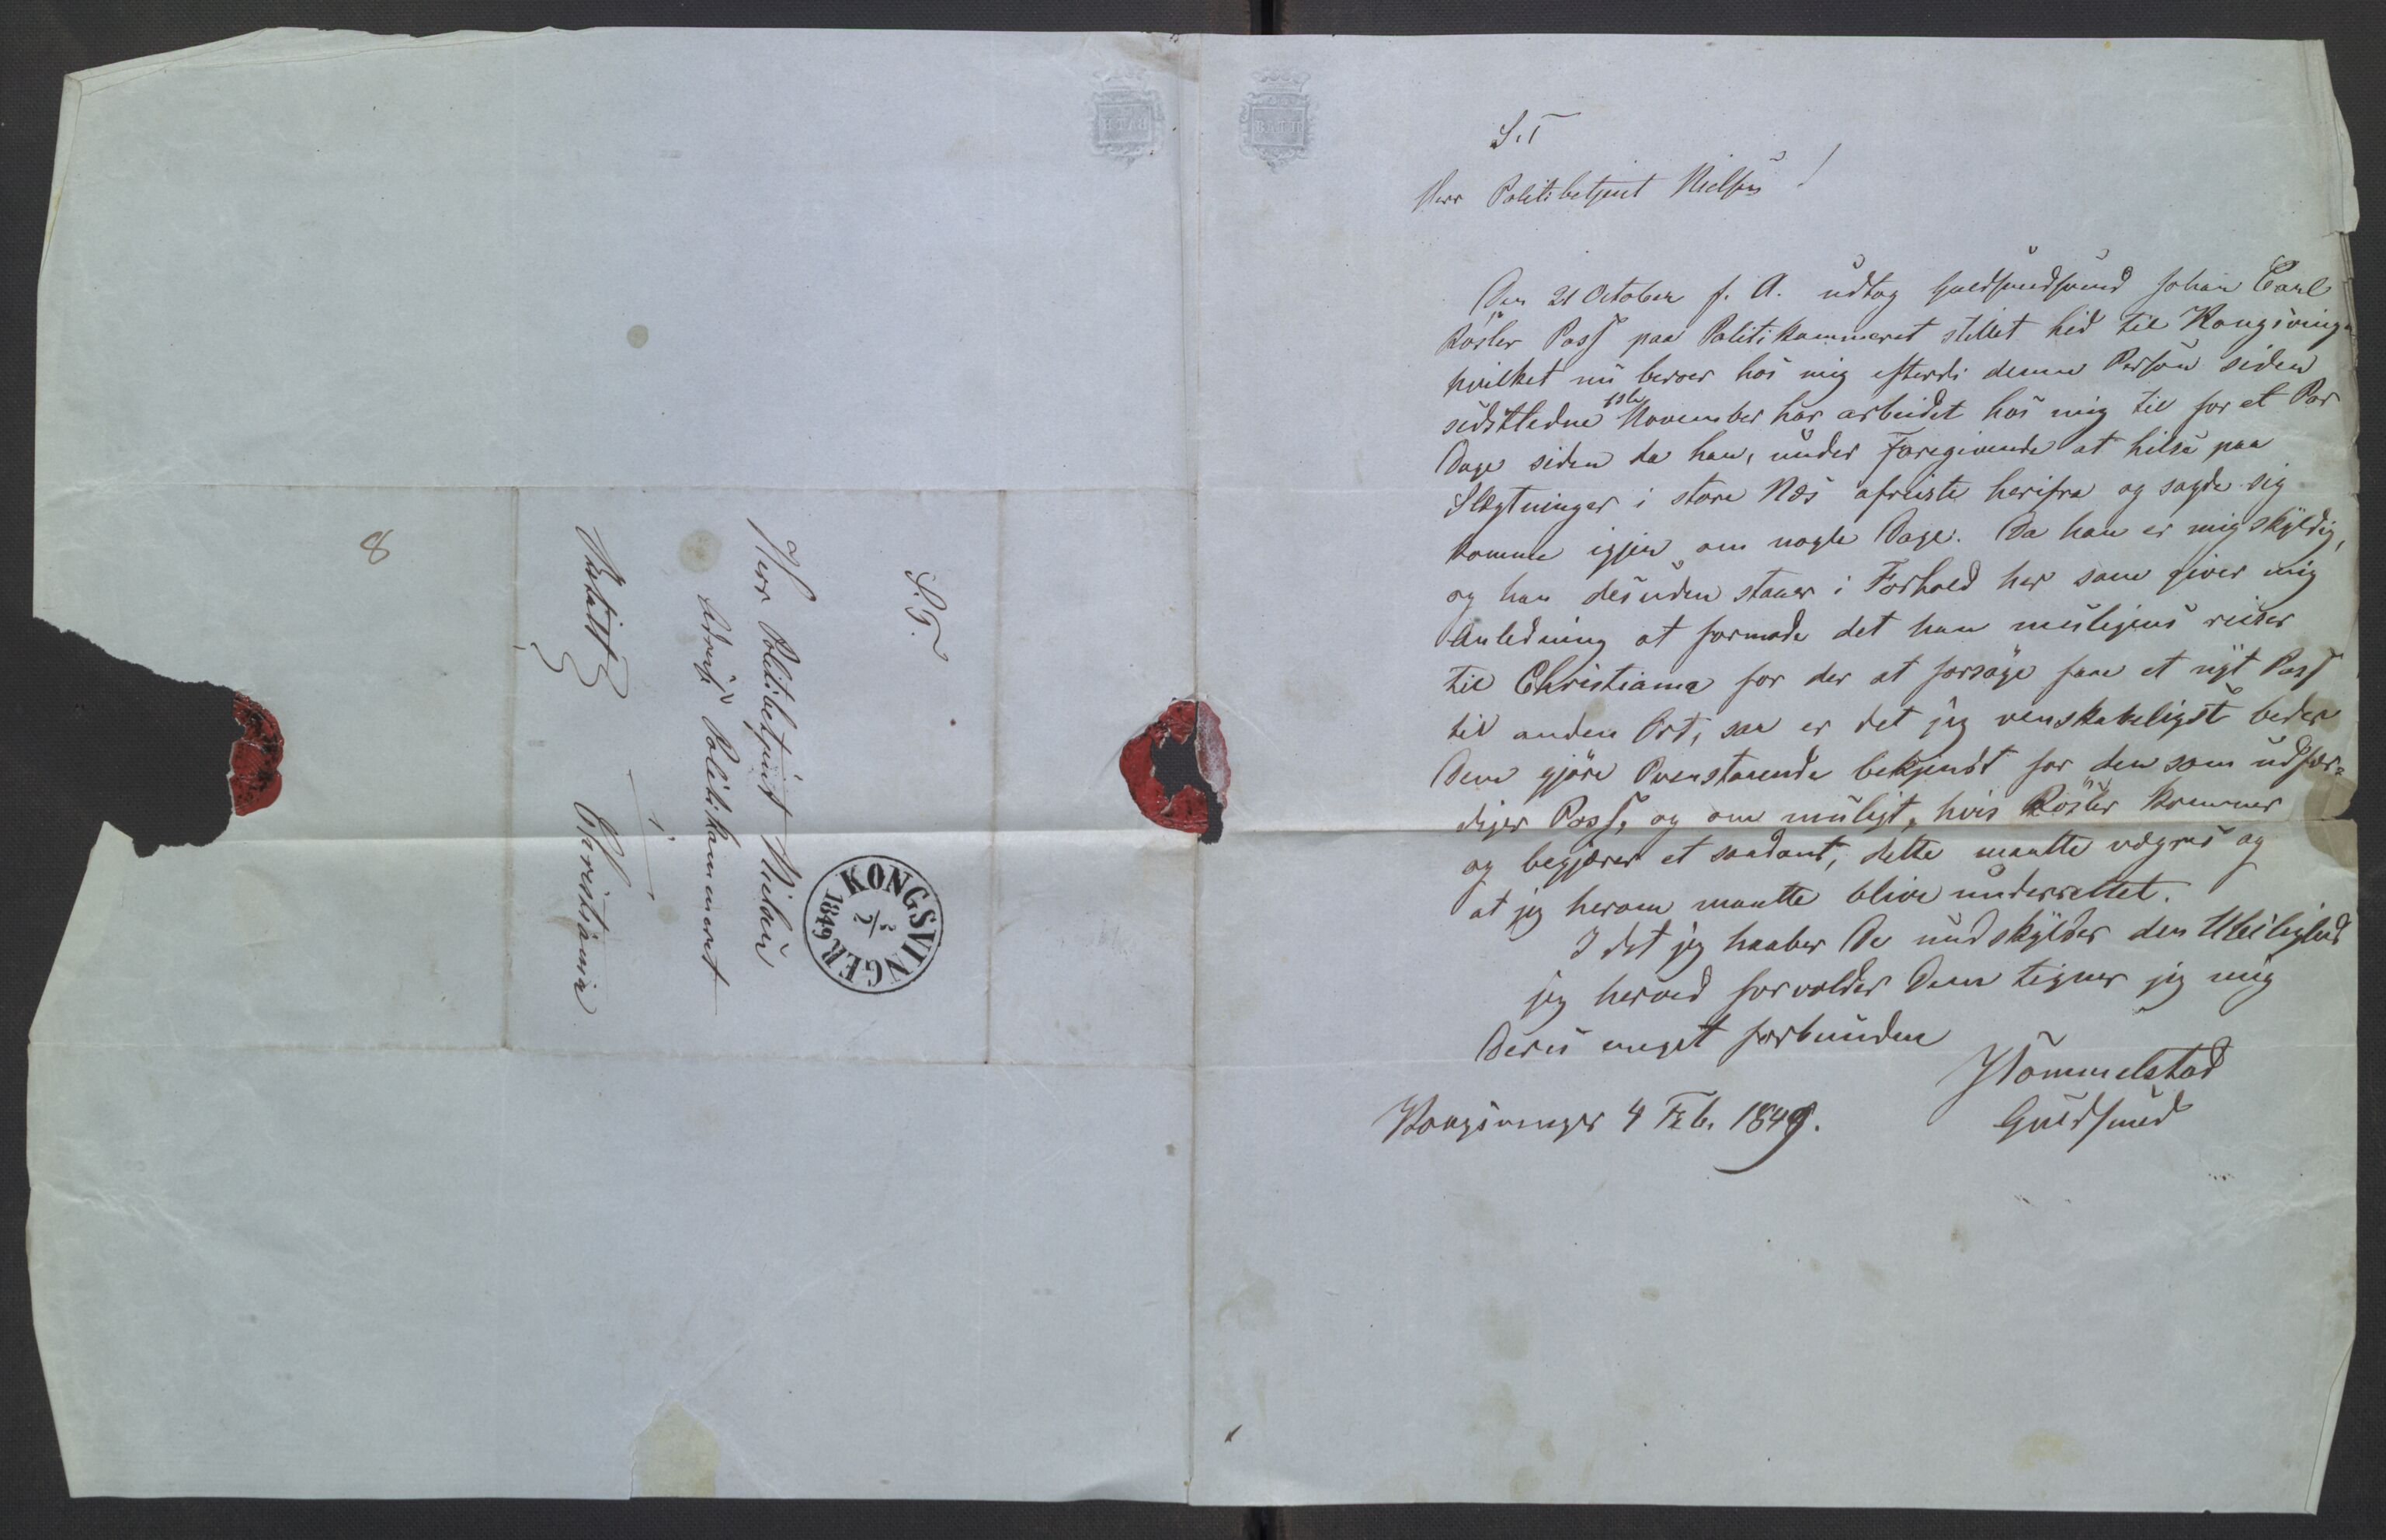 S.T.
Herr Politibetjent Nielsen
adressr Politikammeret
i
Betalt
Christiania
8
KONGSVINGER
1849
S.T
Herr Politibetjent Nielsen!
Den 21 October f. A. udtog Guldsmedsvend Johan Carl
Rösler Pass paa Politikammeret stillet hid til Kongsvinger
hvilket nu beroer hos mig efterdi denne Person siden
sidstledne November har arbeidet hos mig til for et Par
Dage siden da han, under Foregivende at hilse paa
Slægtninger i store Næs afreiste herifra og sagde sig
komme igjen om nogle Dage. Da han er mig skyldig,
og han desuden staaer i Forhold her som giver mig
Anledning at formode det han muligens reiser
til Christiania for der at forsøge faae et nyt Pass
til anden Ort, saa er det jeg venskabeligst beder
Dem gjöre Ovenstaaende bekjendt for den som udfær-
diger Pass, og om muligt, hvis Rösler kommer
og begjærer et saadant, dette maatte vægres og
at jeg herom maatte blive underrettet.
I det jeg haaber De undskylder den Uleilighed
jeg herved forvolder Dem tegner jeg mig
Deres meget forbundne
Hommelstad
Kongsvinger 4 Feb. 1849.
Guldsmed